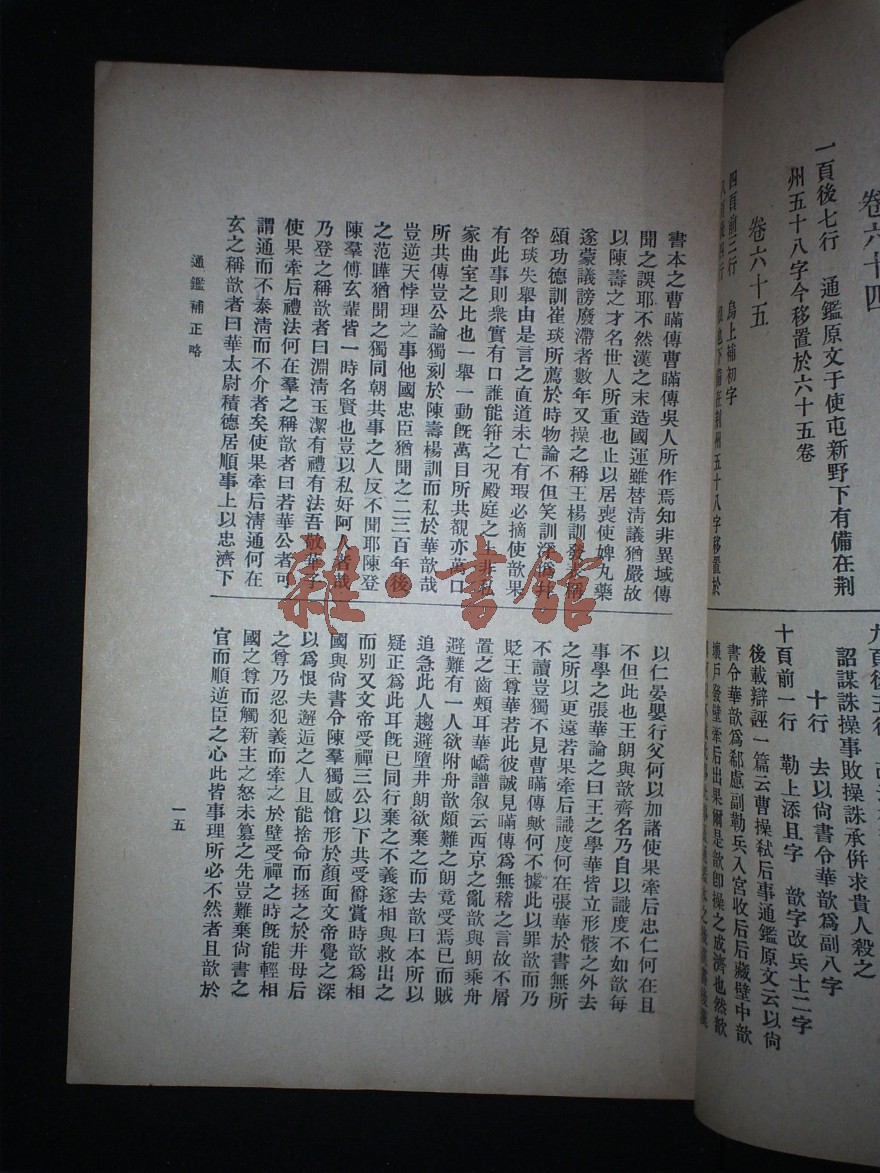 卷六十四
一頁後七行　通鑑原文于使屯新野下有備在荆
州五十八字今移置於六十五卷
卷六十五
四頁前三行　烏上補初字
備在荆州五十八字移置於
九頁後五行
詔謀誅操事敗操誅承併求貴人殺之
十行　去以尙書令華歆爲副八字
十頁前一行　勒上添且字　歆字改兵士二字
後載辯誣一篇云曹操弒后事通鑑原文云以尙
書令華歆爲郗慮副勒兵入宮收后后藏壁中歆
壞戶發壁牽后出果爾是歆卽操之成濟也然歆
書本之曹瞞傳曹瞞傳吳人所作焉知非異域傳
聞之誤耶不然漢之末造國運雖替淸議猶嚴故
以陳壽之才名世人所重也止以居喪使婢丸藥
遂蒙議謗廢滯者數年又操之稱王楊訓發表稱
頌功德訓崔琰所薦於時物論不但笑訓浮僞并
咎琰失舉由是言之直道未亡有瑕必摘使歆果
有此事則衆實有口誰能箝之况殿庭之上非私
家曲室之比也一舉一動旣萬目所共覩亦萬口
所共傳豈公論獨刻於陳壽楊訓而私於華歆哉
豈逆天悖理之事他國忠臣猶聞之二三百年後
之范曄猶聞之獨同朝共事之人反不聞耶陳登
陳羣傅玄輩皆一時名賢也豈以私好阿人者哉
乃登之稱歆者曰淵淸玉潔有禮有法吾敬華子
使果牽后禮法何在羣之稱歆者曰若華公者可
謂通而不泰淸而不介者矣使果牽后淸通何在
玄之稱歆者曰華太尉積德居順事上以忠濟下
通鑑補正略
以仁晏嬰行父何以加諸使果牽后忠仁何在且
不但此也王朗與歆齊名乃自以識度不如歆每
事學之張華論之曰王之學華皆立形骸之外去
之所以更遠若果牽后識度何在張華於書無所
不讀豈獨不見曹瞞傳歟何不據此以罪歆而乃
貶王尊華若此彼誠見瞞傳爲無稽之言故不屑
置之齒頰耳華嶠譜叙云西京之亂歆與朗乘舟
避難有一人欲附舟歆頗難之朗竟受焉已而賊
追急此人趨避墮井朗欲棄之而去歆曰本所以
疑正爲此耳旣已同行棄之不義遂相與救出之
而別又文帝受禪三公以下共受爵賞時歆爲相
國與尙書令陳羣獨感愴形於顏面文帝覺之深
以爲恨夫邂逅之人且能捨命而拯之於井母后
之尊乃忍犯義而牽之於壁受禪之時旣能輕相
國之尊而觸新主之怒未篡之先豈難棄尙書之
官而順逆臣之心此皆事理所必不然者且歆於
一五
雜·書館